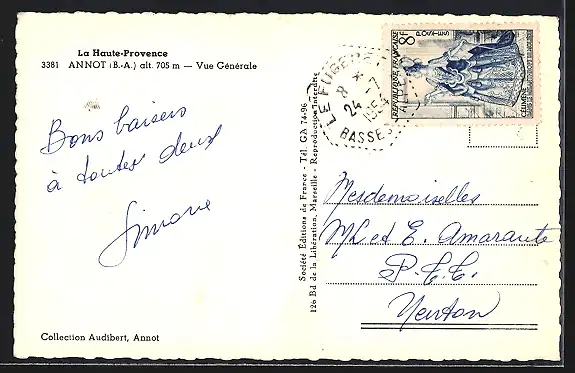 La Haute-Provence
3381 ANNOT (B.-A.) alt. 705 m — Vue Générale
Bons baisers
à toutes deux
Simone
Collection Audibert, Annot
Société Éditions de France - Tél. GA 74-96
126 Bd de la Libération, Marseille - Reproduction Interdite
8F
POSTES
REPUBLIQUE FRANÇAISE
LE FUGERET
8 *
24 -7
1954
BASSES ALPES
Mesdemoiselles
M L et E. Amarante
P.T.T.
Menton